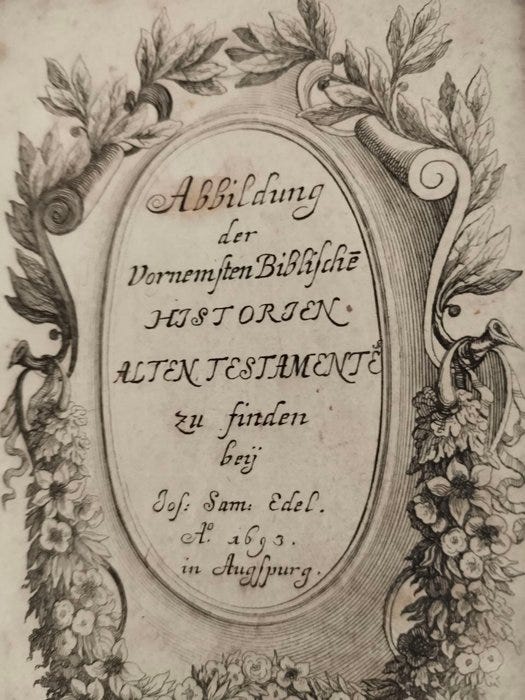 Abbildung
der
Vornemſten Bibliſchē
HISTORIEN
ALTEN TESTAMENTẽs
zu finden
beÿ
Joſ: Sam: Edel.
Aº. 1693.
in Augſpurg.